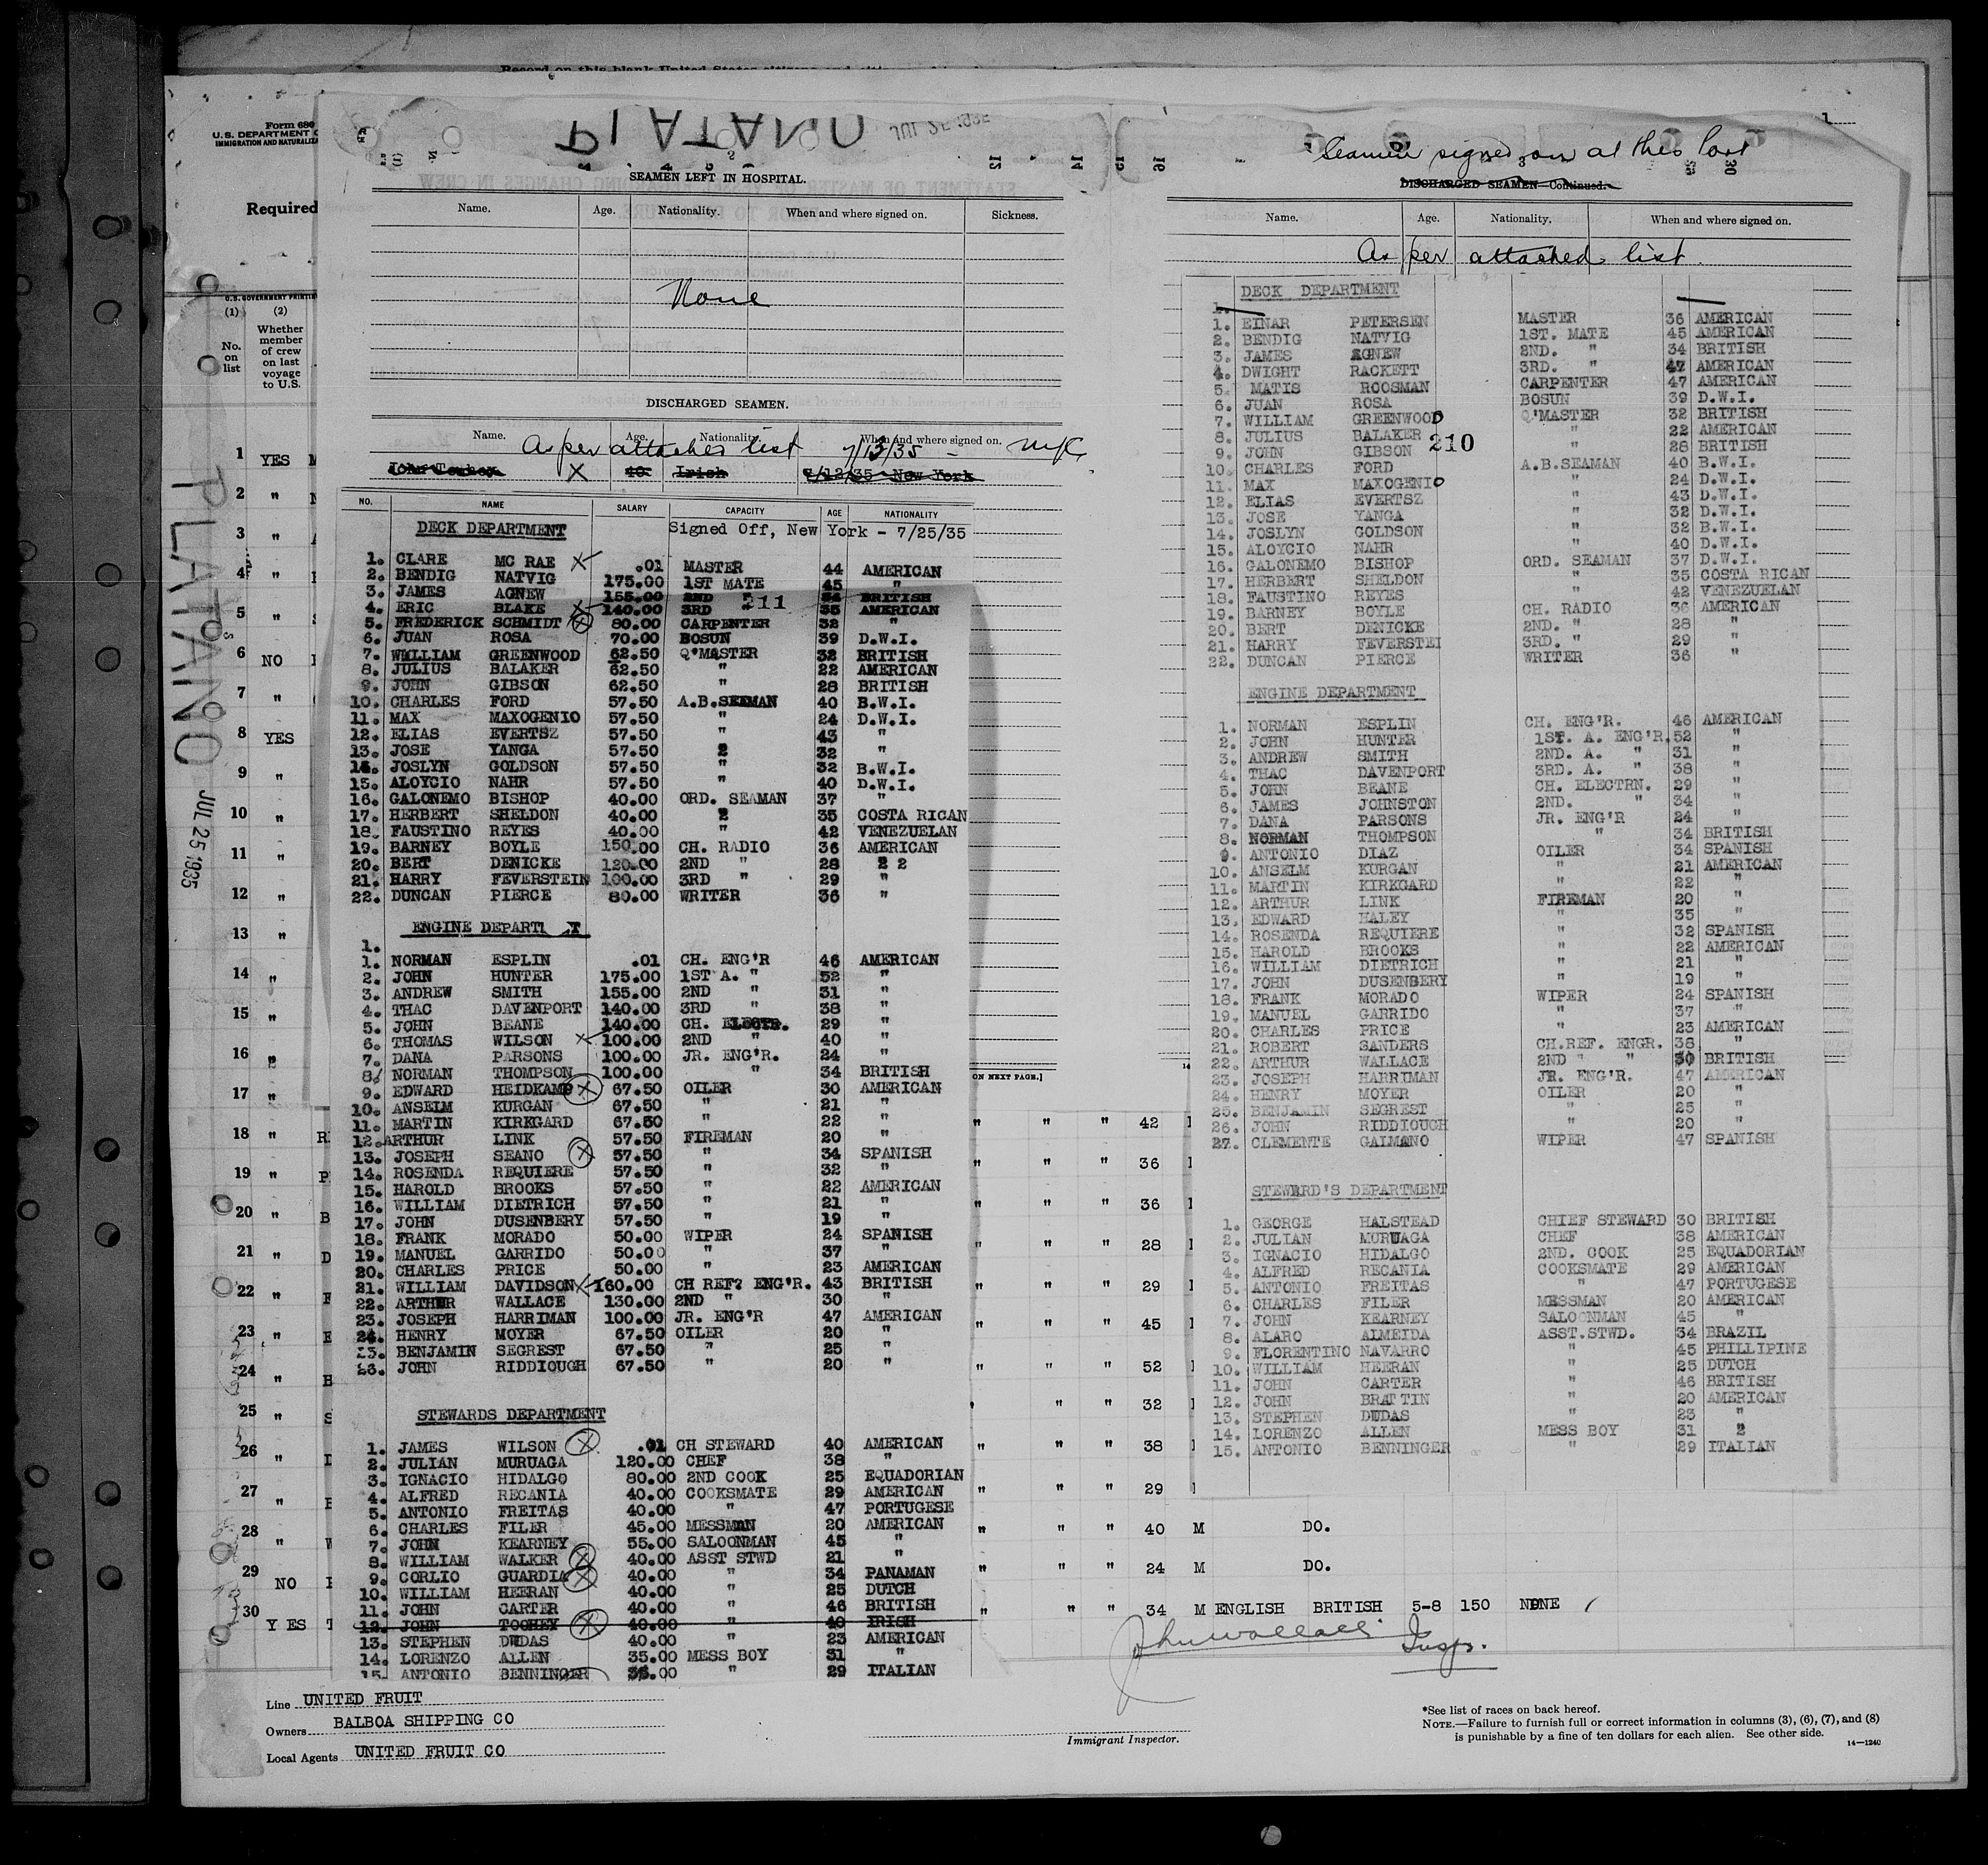 Form 680
U.S. DEPARTMENT O
IMMIGRATION AND NATURALIZA
Required
U.S. GOVERNMENT PRINTIN
(1) (2)
No. on list
Whether member of crew on last voyage to U.S.
PLATANO
JUL 25 1935
1 YES
2 "
3 "
4 "
5 "
6 NO
7 "
8 YES
9 "
10 "
11 "
12 "
13 "
14 "
15 "
16 "
17 "
18 "
19 "
20 "
21 "
22 "
23 "
24 "
25 "
26 "
27 "
28 "
29 NO
30 Y ES
PLATANO
SEAMEN LEFT IN HOSPITAL.
Name. Age. Nationality. When and where signed on. Sickness.
None
DISCHARGED SEAMEN.
Name. Age. Nationality. When and where signed on.
As per attached list 7/13/35 - NYC
X 40. Irish 7/12/35 New York
NO. NAME SALARY CAPACITY AGE NATIONALITY
DECK DEPARTMENT Signed Off, New York - 7/25/35
1. CLARE MC RAE X .01 MASTER 44 AMERICAN
2. BENDIG NATVIG 175.00 1ST MATE 45 "
3. JAMES AGNEW 155.00 2ND 211 34 BRITISH
4. ERIC BLAKE X 140.00 3RD 35 AMERICAN
5. FREDERICK SCHMIDT X 80.00 CARPENTER 32 "
6. JUAN ROSA 70.00 BOSUN 39 D.W.I.
7. WILLIAM GREENWOOD 62.50 Q'MASTER 32 BRITISH
8. JULIUS BALAKER 62.50 " 22 AMERICAN
9. JOHN GIBSON 62.50 " 28 BRITISH
10. CHARLES FORD 57.50 A.B.SEAMAN 40 B.W.I.
11. MAX MAXOGENIO 57.50 " 24 D.W.I.
12. ELIAS EVERTSZ 57.50 " 43 "
13. JOSE YANGA 57.50 2 32 "
14. JOSLYN GOLDSON 57.50 " 32 B.W.I.
15. ALOYCIO NAHR 57.50 " 40 D.W.I.
16. GALONEMO BISHOP 40.00 ORD. SEAMAN 37 "
17. HERBERT SHELDON 40.00 2 35 COSTA RICAN
18. FAUSTINO REYES 40.00 " 42 VENEZUELAN
19. BARNEY BOYLE 150.00 CH. RADIO 36 AMERICAN
20. BERT DENICKE 120.00 2ND " 28 2 2
21. HARRY FEVERSTEIN 100.00 3RD " 29 "
22. DUNCAN PIERCE 80.00 WRITER 36 "
ENGINE DEPART T
1.
1. NORMAN ESPLIN .01 CH. ENG'R 46 AMERICAN
2. JOHN HUNTER 175.00 1ST A. " 52 "
3. ANDREW SMITH 155.00 2ND " 31 "
4. THAC DAVENPORT 140.00 3RD " 38 "
5. JOHN BEANE 140.00 CH. ELECTR. 29 "
6. THOMAS WILSON X 100.00 2ND " 40 "
7. DANA PARSONS 100.00 JR. ENG'R. 24 "
8. NORMAN THOMPSON 100.00 " 34 BRITISH
9. EDWARD HEIDKAMP X 67.50 OILER 30 AMERICAN
10. ANSELM KURGAN 67.50 " 21 "
11. MARTIN KIRKGARD 67.50 " 22 "
12. ARTHUR LINK 57.50 FIREMAN 20 "
13. JOSEPH SEANO X 57.50 " 34 SPANISH
14. ROSENDA REQUIERE 57.50 " 32 "
15. HAROLD BROOKS 57.50 " 22 AMERICAN
16. WILLIAM DIETRICH 57.50 " 21 "
17. JOHN DUSENBERY 57.50 " 19 "
18. FRANK MORADO 50.00 WIPER 24 SPANISH
19. MANUEL GARRIDO 50.00 " 37 "
20. CHARLES PRICE 50.00 " 23 AMERICAN
21. WILLIAM DAVIDSON X 160.00 CH REF? ENG'R. 43 BRITISH
22. ARTHUR WALLACE 130.00 2ND " 30 "
23. JOSEPH HARRIMAN 100.00 JR. ENG'R 47 AMERICAN
24. HENRY MOYER 67.50 OILER 20 "
25. BENJAMIN SEGREST 67.50 " 25 "
26. JOHN RIDDIOUGH 67.50 " 20 "
STEWARDS DEPARTMENT
1. JAMES WILSON X .01 CH STEWARD 40 AMERICAN
2. JULIAN MURUAGA 120.00 CHEF 38 "
3. IGNACIO HIDALGO 80.00 2ND COOK 25 EQUADORIAN
4. ALFRED RECANIA 40.00 COOKSMATE 29 AMERICAN
5. ANTONIO FREITAS 40.00 " 47 PORTUGESE
6. CHARLES FILER 45.00 MESSMAN 20 AMERICAN
7. JOHN KEARNEY 55.00 SALOONMAN 45 "
8. WILLIAM WALKER X 40.00 ASST STWD 21 "
9. CORLIO GUARDIA X 40.00 " 34 PANAMAN
10. WILLIAM HEERAN 40.00 " 25 DUTCH
11. JOHN CARTER 40.00 " 46 BRITISH
12. JOHN TOOHEY X 40.00 " 40 IRISH
13. STEPHEN DUDAS 40.00 " 23 AMERICAN
14. LORENZO ALLEN 35.00 MESS BOY 31 "
15. ANTONIO BENNINGER 35.00 " 29 ITALIAN
Line UNITED FRUIT
Owners BALBOA SHIPPING CO
Local Agents UNITED FRUIT CO
Seamen signed on at this Port
DISCHARGED SEAMEN—Continued.
Name. Age. Nationality. When and where signed on.
As per attached list
DECK DEPARTMENT
1.
1. EINAR PETERSEN MASTER 36 AMERICAN
2. BENDIG NATVIG 1ST. MATE 45 AMERICAN
3. JAMES AGNEW 2ND. " 34 BRITISH
4. DWIGHT RACKETT 3RD. " 47 AMERICAN
5. MATIS ROOSMAN CARPENTER 47 AMERICAN
6. JUAN ROSA BOSUN 39 D.W.I.
7. WILLIAM GREENWOOD Q'MASTER 32 BRITISH
8. JULIUS BALAKER " 22 AMERICAN
210
9. JOHN GIBSON " 28 BRITISH
10. CHARLES FORD A.B.SEAMAN 40 B.W.I.
11. MAX MAXOGENIO " 24 D.W.I.
12. ELIAS EVERTSZ " 43 D.W.I.
13. JOSE YANGA " 32 D.W.I.
14. JOSLYN GOLDSON " 32 B.W.I.
15. ALOYCIO NAHR " 40 D.W.I.
16. GALONEMO BISHOP ORD. SEAMAN 37 D.W.I.
17. HERBERT SHELDON " 35 COSTA RICAN
18. FAUSTINO REYES " 42 VENEZUELAN
19. BARNEY BOYLE CH. RADIO 36 AMERICAN
20. BERT DENICKE 2ND. " 28 "
21. HARRY FEVERSTEI 3RD. " 29 "
22. DUNCAN PIERCE WRITER 36 "
ENGINE DEPARTMENT
1. NORMAN ESPLIN CH. ENG'R. 46 AMERICAN
2. JOHN HUNTER 1ST. A. ENG'R. 52 "
3. ANDREW SMITH 2ND. A. " 31 "
4. THAC DAVENPORT 3RD. A. " 38 "
5. JOHN BEANE CH. ELECTRN. 29 "
6. JAMES JOHNSTON 2ND. " 34 "
7. DANA PARSONS JR. ENG'R 24 "
8. NORMAN THOMPSON " 34 BRITISH
9. ANTONIO DIAZ OILER 34 SPANISH
10. ANSELM KURGAN " 21 AMERICAN
11. MARTIN KIRKGARD " 22 "
12. ARTHUR LINK FIREMAN 20 "
13. EDWARD HALEY " 35 "
14. ROSENDA REQUIERE " 32 SPANISH
15. HAROLD BROOKS " 22 AMERICAN
16. WILLIAM DIETRICH " 21 "
17. JOHN DUSENBERY " 19 "
18. FRANK MORADO WIPER 24 SPANISH
19. MANUEL GARRIDO " 37 "
20. CHARLES PRICE " 23 AMERICAN
21. ROBERT SANDERS CH.REF. ENGR. 38 "
22. ARTHUR WALLACE 2ND " " 30 BRITISH
23. JOSEPH HARRIMAN JR. ENG'R. 47 AMERICAN
24. HENRY MOYER OILER 20 "
25. BENJAMIN SEGREST " 25 "
26. JOHN RIDDIOUGH " 20 "
27. CLEMENTE GALMANO WIPER 47 SPANISH
STEWERD'S DEPARTMENT
1. GEORGE HALSTEAD CHIEF STEWARD 30 BRITISH
2. JULIAN MURUAGA CHEF 38 AMERICAN
3. IGNACIO HIDALGO 2ND. COOK 25 EQUADORIAN
4. ALFRED RECANIA COOKSMATE 29 AMERICAN
5. ANTONIO FREITAS " 47 PORTUGESE
6. CHARLES FILER MESSMAN 20 AMERICAN
7. JOHN KEARNEY SALOONMAN 45 "
8. ALARO ALMEIDA ASST.STWD. 34 BRAZIL
9. FLORENTINO NAVARRO " 45 PHILLIPINE
10. WILLIAM HEERAN " 25 DUTCH
11. JOHN CARTER " 46 BRITISH
12. JOHN BRATTIN " 20 AMERICAN
13. STEPHEN DUDAS " 23 "
14. LORENZO ALLEN MESS BOY 31 2
15. ANTONIO BENNINGER " 29 ITALIAN
ON NEXT PAGE.]
" " " 42
" " " 36
" " " 36
" " " 28
" " " 29
" " " 45
" " " 52
" " " 32
" " " 38
" " " 29
" " " 40 M DO.
" " " 24 M DO.
" " " 34 M ENGLISH BRITISH 5-8 150 NONE
John Wallace Insp.
Immigrant Inspector.
*See list of races on back hereof.
NOTE.—Failure to furnish full or correct information in columns (3), (6), (7), and (8)
is punishable by a fine of ten dollars for each alien. See other side.
14—1240